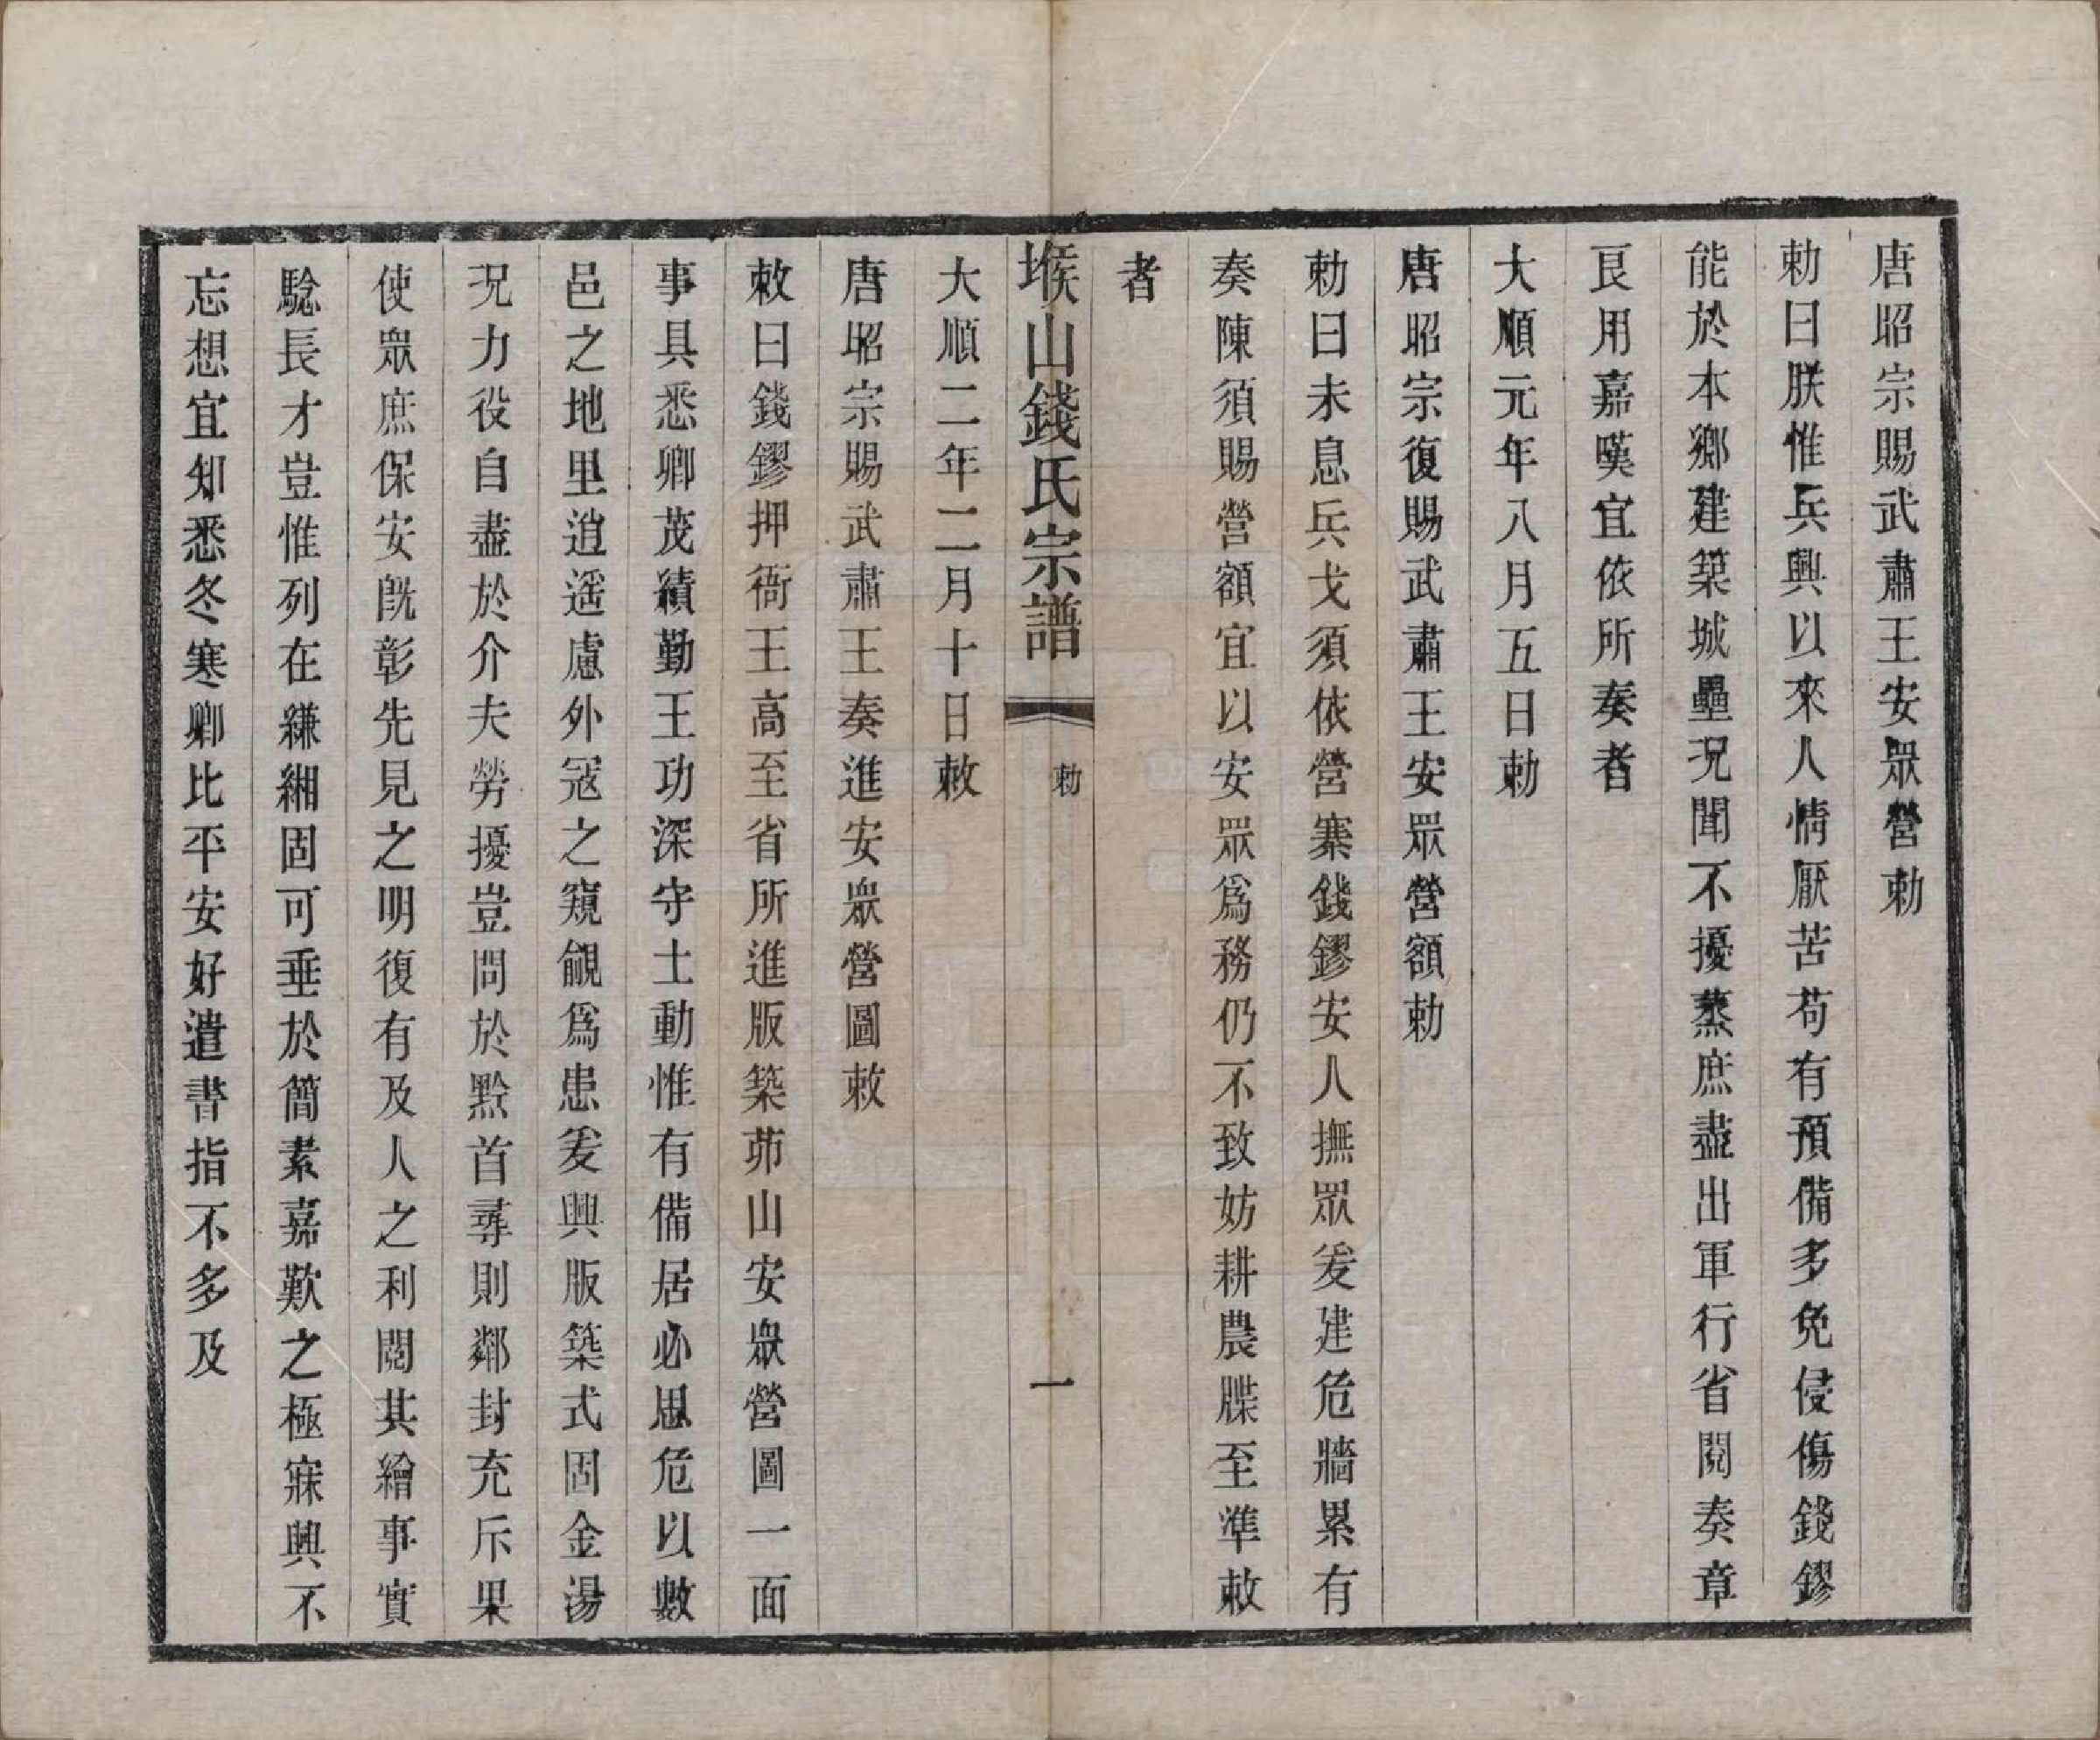 唐昭宗賜武肅王安眾營勅
勅曰朕惟兵興以來人情厭苦苟有預備多免侵傷錢鏐
能於本鄉建築城壘況聞不擾蒸庶盡出軍行省閱奏章
艮用嘉嘆宜依所奏者
大順元年八月五日勅
唐昭宗復賜武肅王安眾營額勅
勅曰未息兵戈須依營寨錢鏐安人撫眾爰建危牆累有
奏陳須賜營額宜以安眾爲務仍不致妨耕農牒至準敕
者
堠山錢氏宗譜 勅 一
大順二年二月十日敕
唐昭宗賜武肅王奏進安眾營圖敕
敕曰錢鏐押衙王高至省所進版築茆山安眾營圖一面
事具悉卿茂績勤王功深守土動惟有備居必思危以數
邑之地里逍遥慮外寇之窺覦爲患爰興版築式固金湯
況力役自盡於介夫勞擾豈問於黔首尋則鄰封充斥果
使眾庶保安旣彰先見之明復有及人之利閱其繪事實
騐長才豈惟列在縑緗固可垂於簡素嘉歎之極寐興不
忘想宜知悉冬寒卿比平安好遣書指不多及